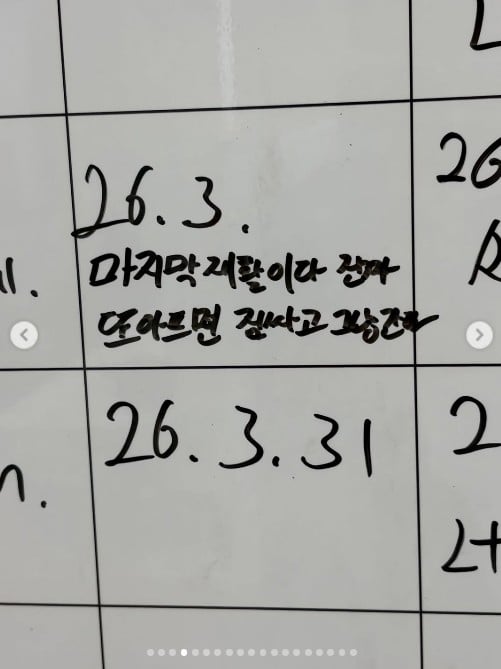 26
26.3.
마지막 재활이다 진짜
또 아프면 짐싸고 그냥 간다
26.3.31
2